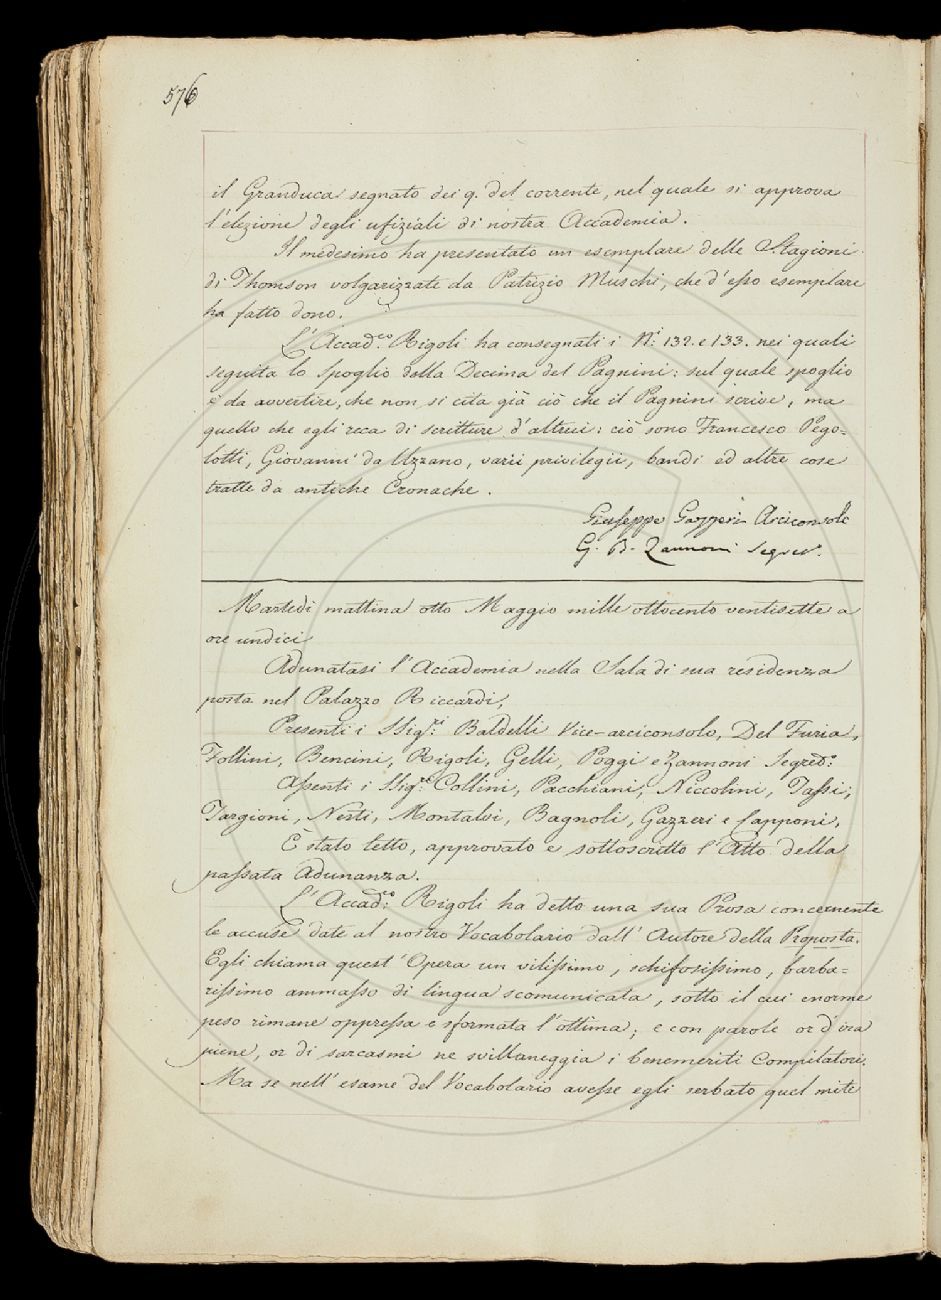 576
il Granduca segnato dei 9. del corrente, nel quale si approva
l'elezione degli ufiziali di nostra Accademia.
Il medesimo ha presentato un esemplare delle Stagioni
di Thomson volgarizzate da Patrizio Muschi, che d'esso esemplare
ha fatto dono.
L'Accad.co Rigoli ha consegnati i N.i 132. e 133. nei quali
seguita lo spoglio della Decima del Pagnini: sul quale spoglio
è da avvertire, che non si cita già ciò che il Pagnini scrive, ma
quello che egli reca di scritture d'altrui: ciò sono Francesco Pego=
lotti, Giovanni da Uzzano, varii privilegii, bandi ed altre cose
tratte da antiche Cronache.
Giuseppe Gazzeri Arciconsolo
G. B. Zannoni Segret.o
Martedì mattina otto Maggio mille ottocento ventisette a
ore undici
Adunatasi l'Accademia nella Sala di sua residenza
posta nel Palazzo Riccardi,
Presenti i SSig.ri Baldelli Vice-arciconsolo, Del Furia,
Follini, Bencini, Rigoli, Gelli, Poggi e Zannoni Segred.o
Assenti i SSig.ri Collini, Pacchiani, Niccolini, Tassi,
Targioni, Nesti, Montalvi, Bagnoli, Gazzeri e Capponi,
È stato letto, approvato e sottoscritto l'Atto della
passata Adunanza.
L'Accad.co Rigoli ha detto una sua Prosa concernente
le accuse date al nostro Vocabolario dall'Autore della Proposta.
Egli chiama quest'Opera un vilissimo, schifosissimo, barba=
rissimo ammasso di lingua scomunicata, sotto il cui enorme
peso rimane oppressa e sformata l'ottima; e con parole or d'ira
piene, or di sarcasmi ne svillaneggia i benemeriti Compilatori.
Ma se nell'esame del Vocabolario avesse egli serbato quel mite